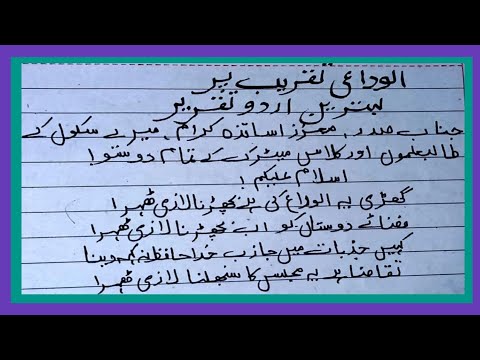 الوداعی تقریب پر
بہترین اردو تقریر
جناب صدر، معزز اساتذہ کرام، میرے سکول کے
طالبعلموں اور کلاس میٹرک کے تمام دوستو!
اسلام علیکم!
گھڑی یہ الوداع کی ہے بچھڑنا لازمی ٹھہرا
دوستاں کو اب بچھڑنا لازمی ٹھہرا
کہیں جذبات میں جاذب خدا حافظ نہ کہہ دینا
تقاضا ہر یہ مجلس کا سنبھلنا لازمی ٹھہرا